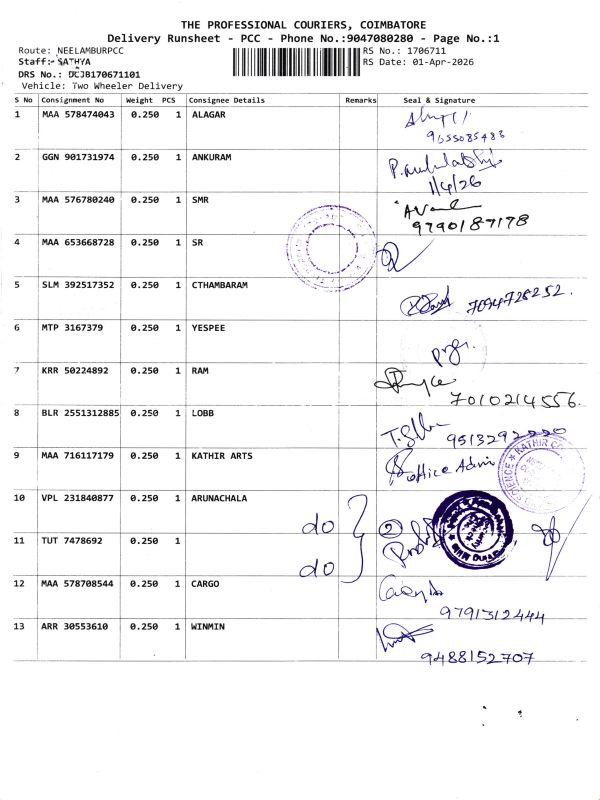 THE PROFESSIONAL COURIERS, COIMBATORE
Delivery Runsheet - PCC - Phone No.:9047080280 - Page No.:1
Route: NEELAMBURPCC RS No.: 1706711
Staff: SATHYA RS Date: 01-Apr-2026
DRS No.: DCJB170671101
Vehicle: Two Wheeler Delivery
S No Consignment No Weight PCS Consignee Details Remarks Seal & Signature
1 MAA 578474043 0.250 1 ALAGAR
9655085483
2 GGN 901731974 0.250 1 ANKURAM
1/4/26
3 MAA 576780240 0.250 1 SMR
9790187178
4 MAA 653668728 0.250 1 SR
5 SLM 392517352 0.250 1 CTHAMBARAM
7094728252.
6 MTP 3167379 0.250 1 YESPEE
7 KRR 50224892 0.250 1 RAM
7010214556.
8 BLR 2551312885 0.250 1 LOBB
9 MAA 716117179 0.250 1 KATHIR ARTS
office Admi
10 VPL 231840877 0.250 1 ARUNACHALA
do
11 TUT 7478692 0.250 1
do
12 MAA 578708544 0.250 1 CARGO
9791312444
13 ARR 30553610 0.250 1 WINMIN
9488152707